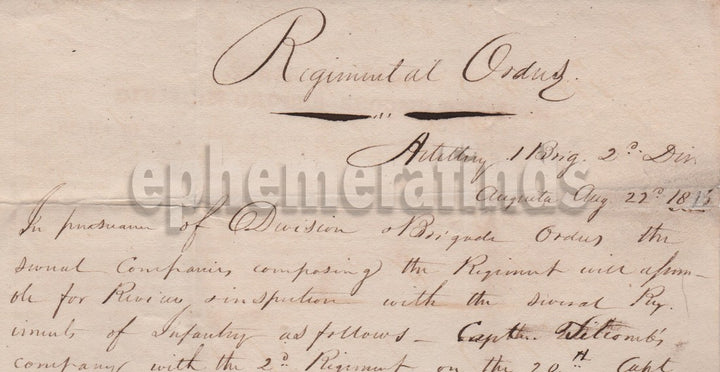 Regimental Orders.
Artillery 1 Brig. 2d Div.
Augusta Aug 22d 18
ephemerafinds
In pursuance of Division & Brigade Orders the
several Companies composing the Regiment will assem-
ble for Review & inspection with the several Reg-
iments of Infantry as follows – Capt Titcomb's
company with the 2d Regiment on the 20th Capt